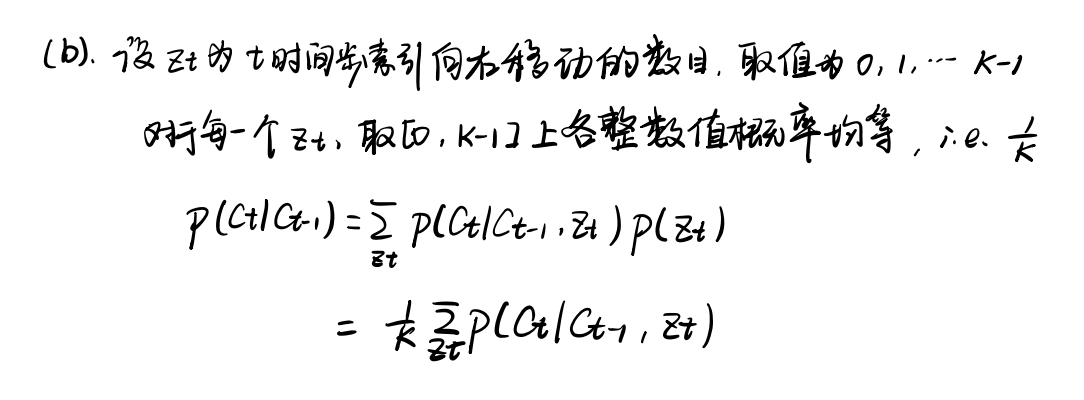 (b). 设 Zt 为 t 时间步索引向右移动的数目, 取值为 0, 1, ⋯ K-1
对于每一个 Zt, 取[0, K-1]上各整数值概率均等, i.e. 1/K
P(Ct|Ct-1) = ∑Zt P(Ct|Ct-1, Zt) P(Zt)
= 1/K ∑Zt P(Ct|Ct-1, Zt)